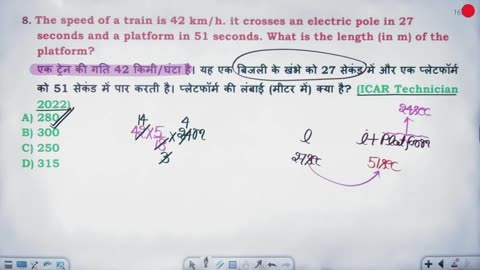 16
8. The speed of a train is 42 km/h. it crosses an electric pole in 27
seconds and a platform in 51 seconds. What is the length (in m) of the
platform?
एक ट्रेन की गति 42 किमी/घंटा है। यह एक बिजली के खंभे को 27 सेकंड में और एक प्लेटफॉर्म
को 51 सेकंड में पार करती है। प्लेटफॉर्म की लंबाई (मीटर में) क्या है? (ICAR Technician
2022)
24sec
A) 280
14 4
42×5 × 24
18
3
B) 300
l l+Platform
C) 250
27sec 51sec
D) 315